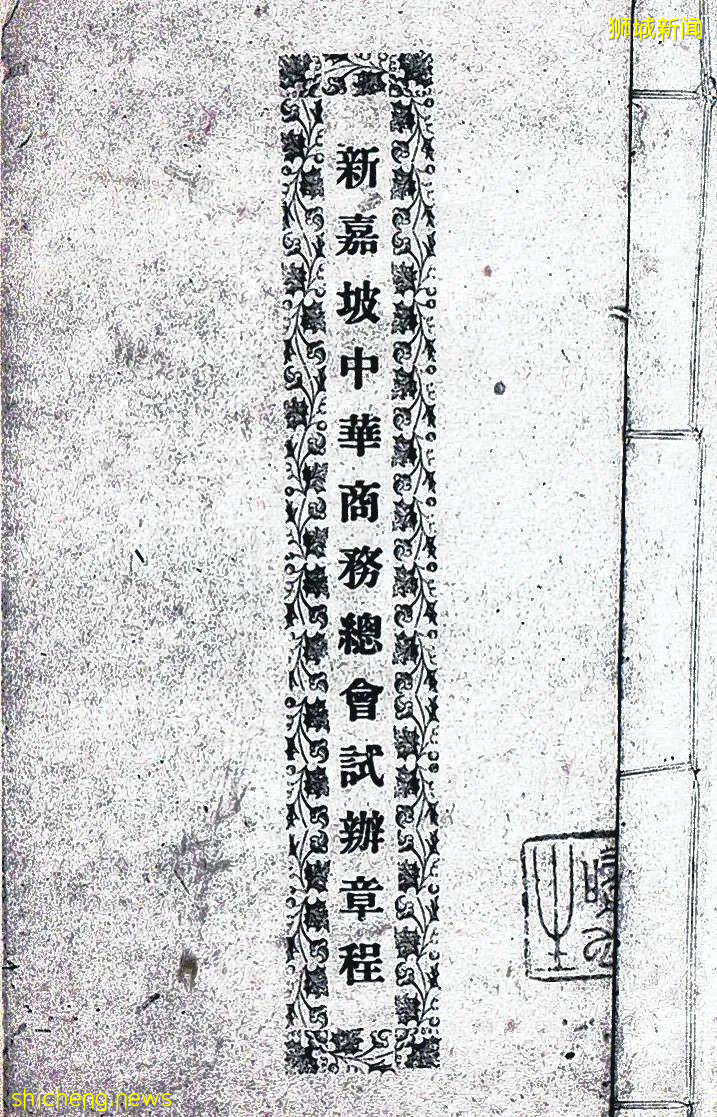 狮城新闻
新嘉坡中華商務總會試辦章程
shicheng.news